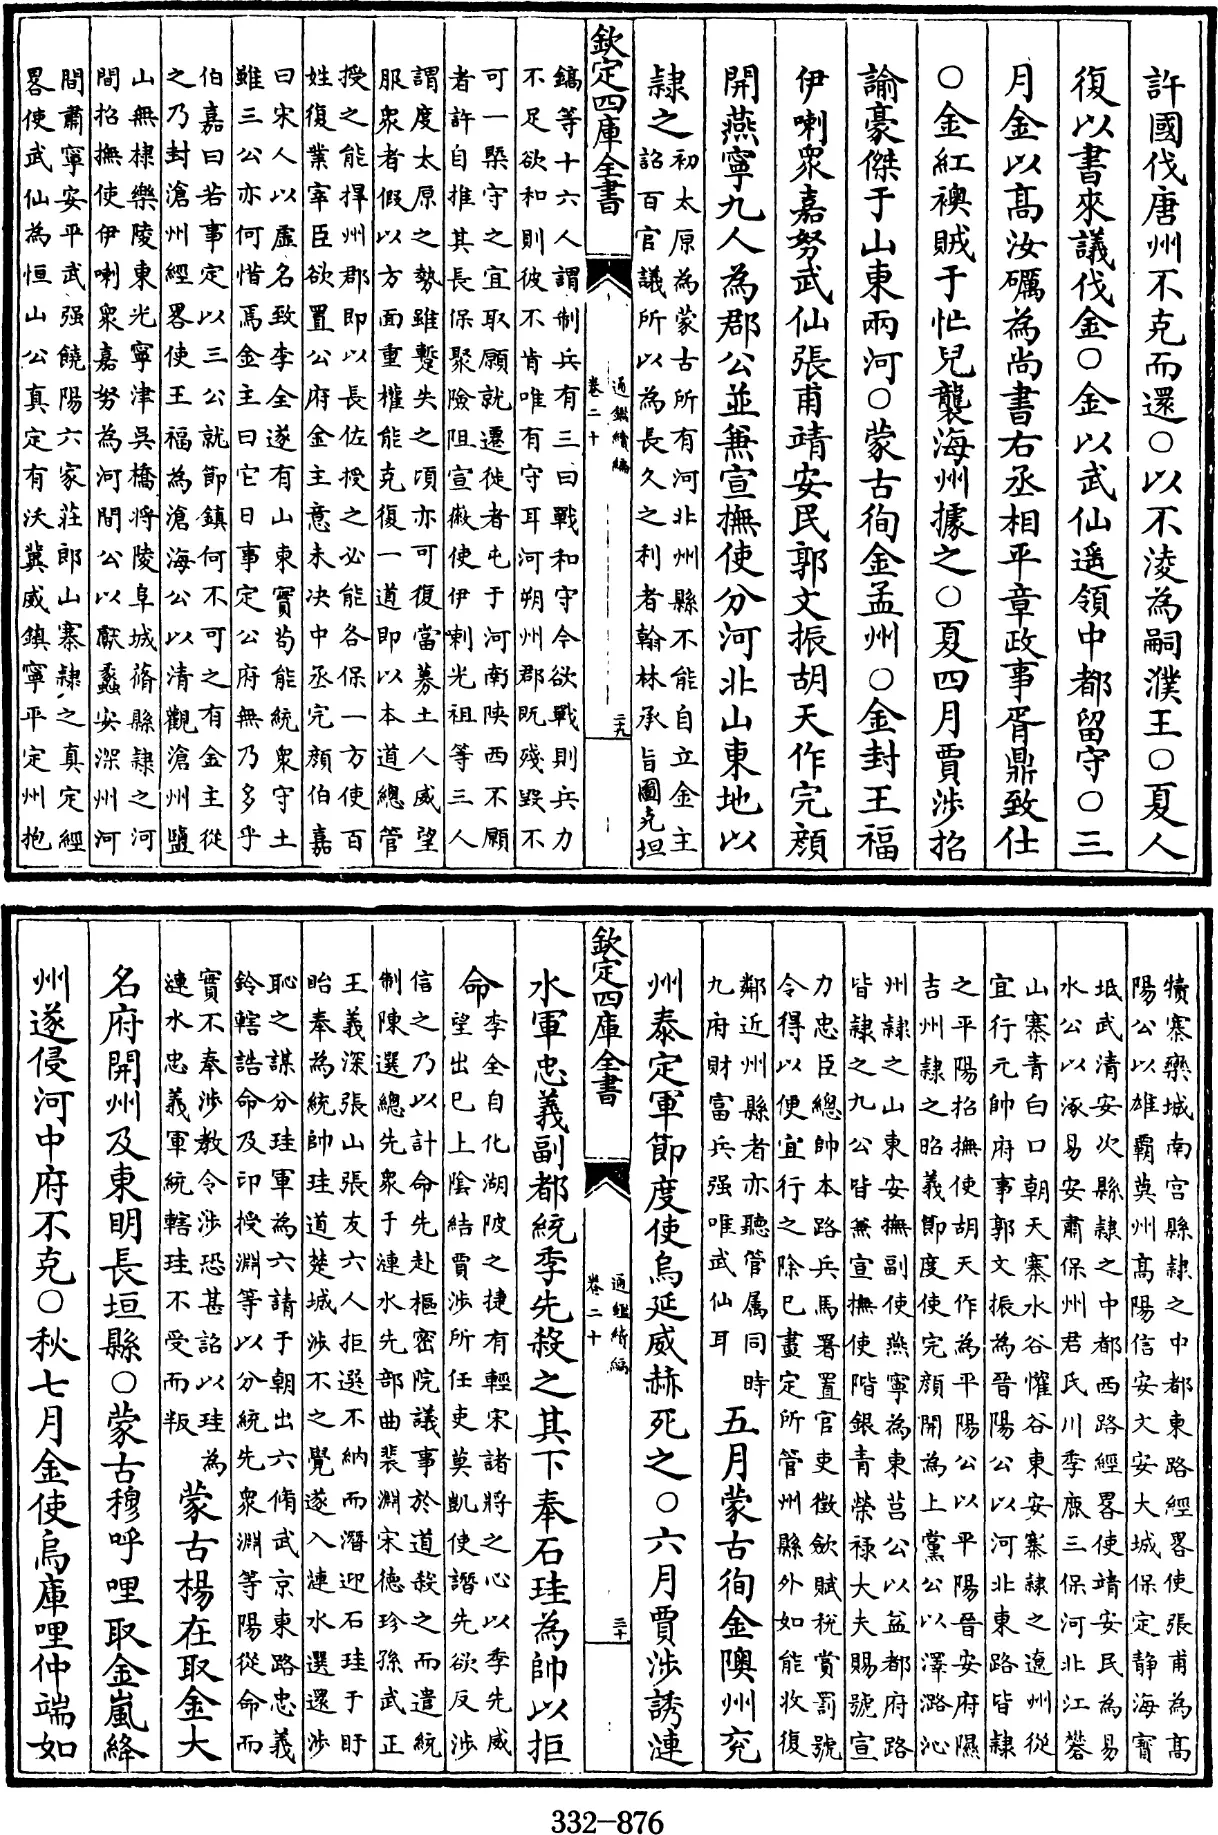 許國伐唐州不克而還○以不淩為嗣濮王○夏人
復以書來議伐金○金以武仙遥領中都留守○三
月金以髙汝礪為尚書右丞相平章政事胥鼎致仕
○金紅襖賊于忙兒襲海州據之○夏四月賈渉招
諭豪傑于山東兩河○蒙古徇金孟州○金封王福
伊喇衆嘉努武仙張甫靖安民郭文振胡天作完顔
開燕寧九人為郡公並兼宣撫使分河北山東地以
隷之
初太原為蒙古所有河北州縣不能自立金主
詔百官議所以為長久之利者翰林承旨圖克坦
欽定四庫全書
通鑑續編
卷二十
二十九
鎬等十六人謂制兵有三曰戰和守今欲戰則兵力
不足欲和則彼不肯唯有守耳河朔州郡既殘毀不
可一槩守之宜取願就遷徙者屯于河南陜西不願
者許自推其長保聚險阻宣徽使伊喇光祖等三人
謂度太原之勢雖蹔失之頃亦可復當募土人威望
服衆者假以方面重權能克復一道即以本道總管
授之能捍州郡即以長佐授之必能各保一方使百
姓復業宰臣欲置公府金主意未决中丞完顔伯嘉
曰宋人以虚名致李全遂有山東實茍能統衆守土
雖三公亦何惜焉金主曰它日事定公府無乃多乎
伯嘉曰若事定以三公就節鎮何不可之有金主從
之乃封滄州經畧使王福為滄海公以清觀滄州鹽
山無棣樂陵東光寧津吳橋將陵阜城蓨縣隷之河
間招撫使伊喇衆嘉努為河間公以獻蠡安深州河
間肅寧安平武强饒陽六家莊郎山寨隷之真定經
畧使武仙為恒山公真定有沃冀威鎮寧平定州抱
犢寨欒城南宫縣隷之中都東路經畧使張甫為髙
陽公以雄覇莫州髙陽信安文安大城保定静海寳
坻武清安次縣隷之中都西路經畧使靖安民為易
水公以涿易安肅保州君氏川季鹿三保河北江礬
山寨青白口朝天寨水谷懽谷東安寨隷之遼州從
宜行元帥府事郭文振為晉陽公以河北東路皆隷
之平陽招撫使胡天作為平陽公以平陽晉安府隰
吉州隷之昭義節度使完顔開為上黨公以澤潞沁
州隷之山東安撫副使燕寧為東莒公以益都府路
皆隷之九公皆兼宣撫使階銀青榮祿大夫賜號宣
力忠臣總帥本路兵馬署置官吏徵歛賦稅賞罰號
令得以便宜行之除已畫定所管州縣外如能收復
鄰近州縣者亦聽管属同時
九府財富兵强唯武仙耳
五月蒙古徇金隩州兖
州泰定軍節度使烏延威赫死之○六月賈渉誘漣
欽定四庫全書
通鑑續編
卷二十
三十
水軍忠義副都統季先殺之其下奉石珪為帥以拒
命
李全自化湖陂之捷有輕宋諸將之心以季先威
望出已上陰結賈渉所任吏莫凱使譖先欲反渉
信之乃以計命先赴樞密院議事於道殺之而遣統
制陳選總先衆于漣水先部曲裴淵宋德珍孫武正
王義深張山張友六人拒選不納而潛迎石珪于盱
眙奉為統帥珪道楚城渉不之覺遂入漣水選還渉
恥之謀分珪軍為六請于朝出六脩武京東路忠義
鈐轄誥命及印授淵等以分統先衆淵等陽從命而
實不奉渉教令渉恐甚詔以珪為
漣水忠義軍統轄珪不受而叛
蒙古楊在取金大
名府開州及東明長垣縣○蒙古穆呼哩取金嵐絳
州遂侵河中府不克○秋七月金使烏庫哩仲端如
332-876